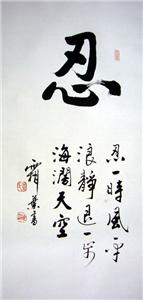 忍
忍一時風平
浪靜退一步
海濶天空